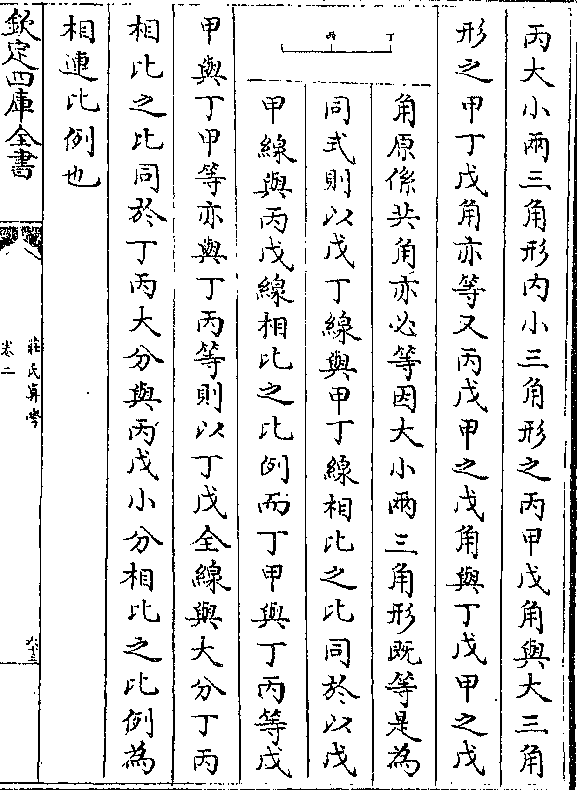 丙大小兩三角形内小三角形之丙甲戊角與大三角
形之甲丁戊角亦等又丙戊甲之戊角與丁戊甲之戊
角原係共角亦必等因大小兩三角形既等是為
同式則以戊丁線與甲丁線相比之比同於以戊
甲線與丙戊線相比之比例而丁甲與丁丙等戊
甲與丁甲等亦與丁丙等則以丁戊全線與大分丁丙
相比之比同於丁丙大分與丙戊小分相比之比例為
相連比例也
丁
丙
欽定四庫全書
莊氏算學
卷二
六十三